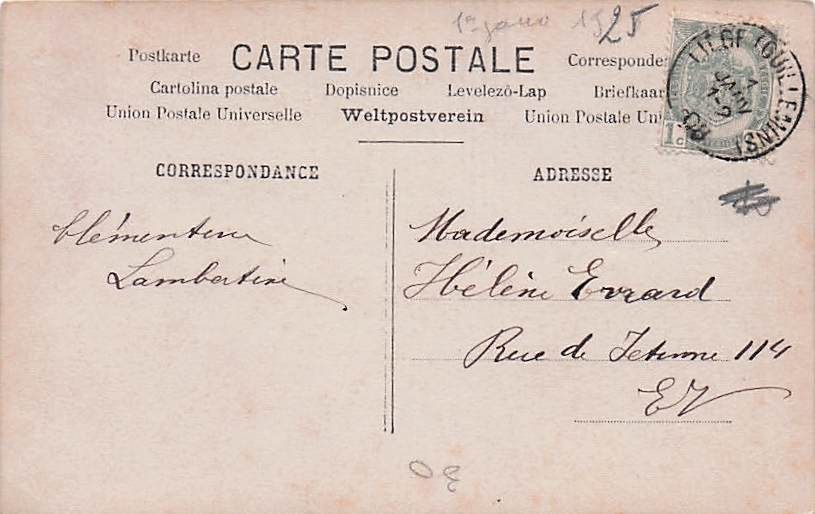 1er janv 1925
Postkarte CARTE POSTALE Corresponde
Cartolina postale Dopisnice Levelező-Lap Briefkaar
Union Postale Universelle Weltpostverein Union Postale Un
1c
CORRESPONDANCE
ADRESSE
Clémentine
Lambertine
Mademoiselle
Hélène Evrard
Rue de 114
EV